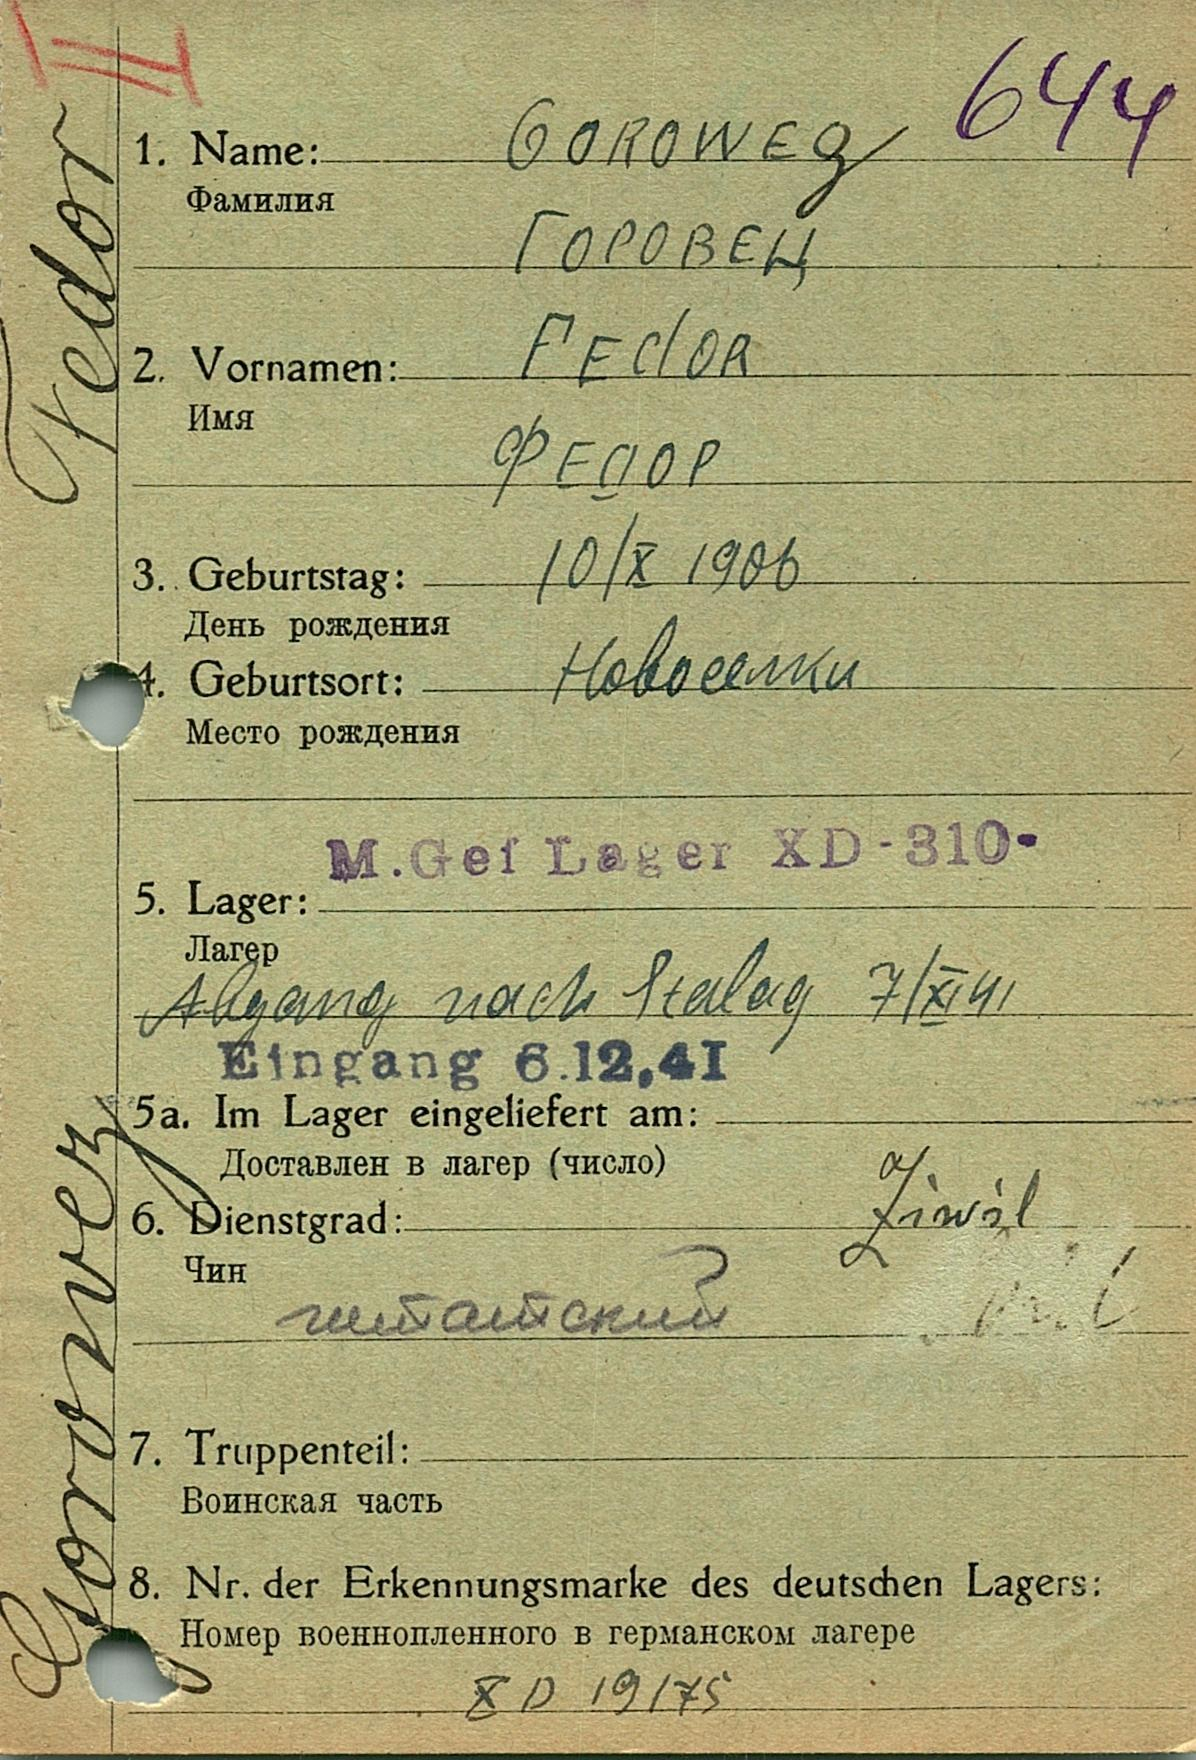 III
644
1. Name: GOROWEZ
Фамилия
ГОРОВЕЦ
2. Vornamen: FEdOR
Имя
ФЕДОР
3. Geburtstag: 10/X 1906
День рождения
4. Geburtsort: Новоселки
Место рождения
M.Gef Lager XD-310-
5. Lager:
Лагер
Abgang nach Stalag 7/XI 41
Eingang 6.12.4I
5a. Im Lager eingeliefert am:
Доставлен в лагер (число)
6. Dienstgrad: Ziwil
Чин
7. Truppenteil:
Воинская часть
8. Nr. der Erkennungsmarke des deutschen Lagers:
Номер военнопленного в германском лагере
XD 19175
Gorowez Fedor